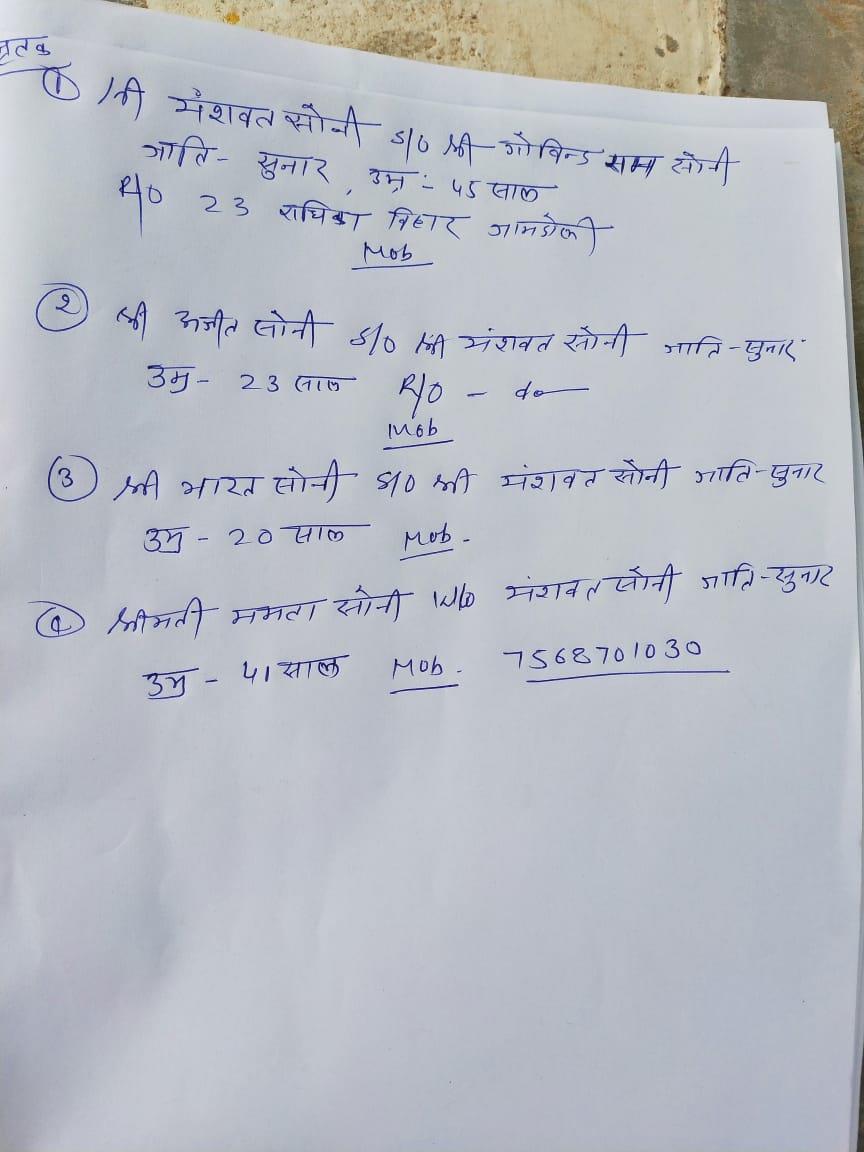 मृतक
① श्री यंशवत सोनी S/O श्री गोविन्द राम सोनी
जाति - सुनार, उम्र :- 45 साल
R/O 23 राधिका विहार जामडोली
Mob
② श्री अजीत सोनी S/O श्री यंशवत सोनी जाति - सुनार
उम्र - 23 साल R/O - do
Mob
③ श्री भारत सोनी S/O श्री यंशवत सोनी जाति - सुनार
उम्र - 20 साल Mob -
④ श्रीमती ममता सोनी W/O यंशवत सोनी जाति - सुनार
उम्र - 41 साल Mob. 7568701030